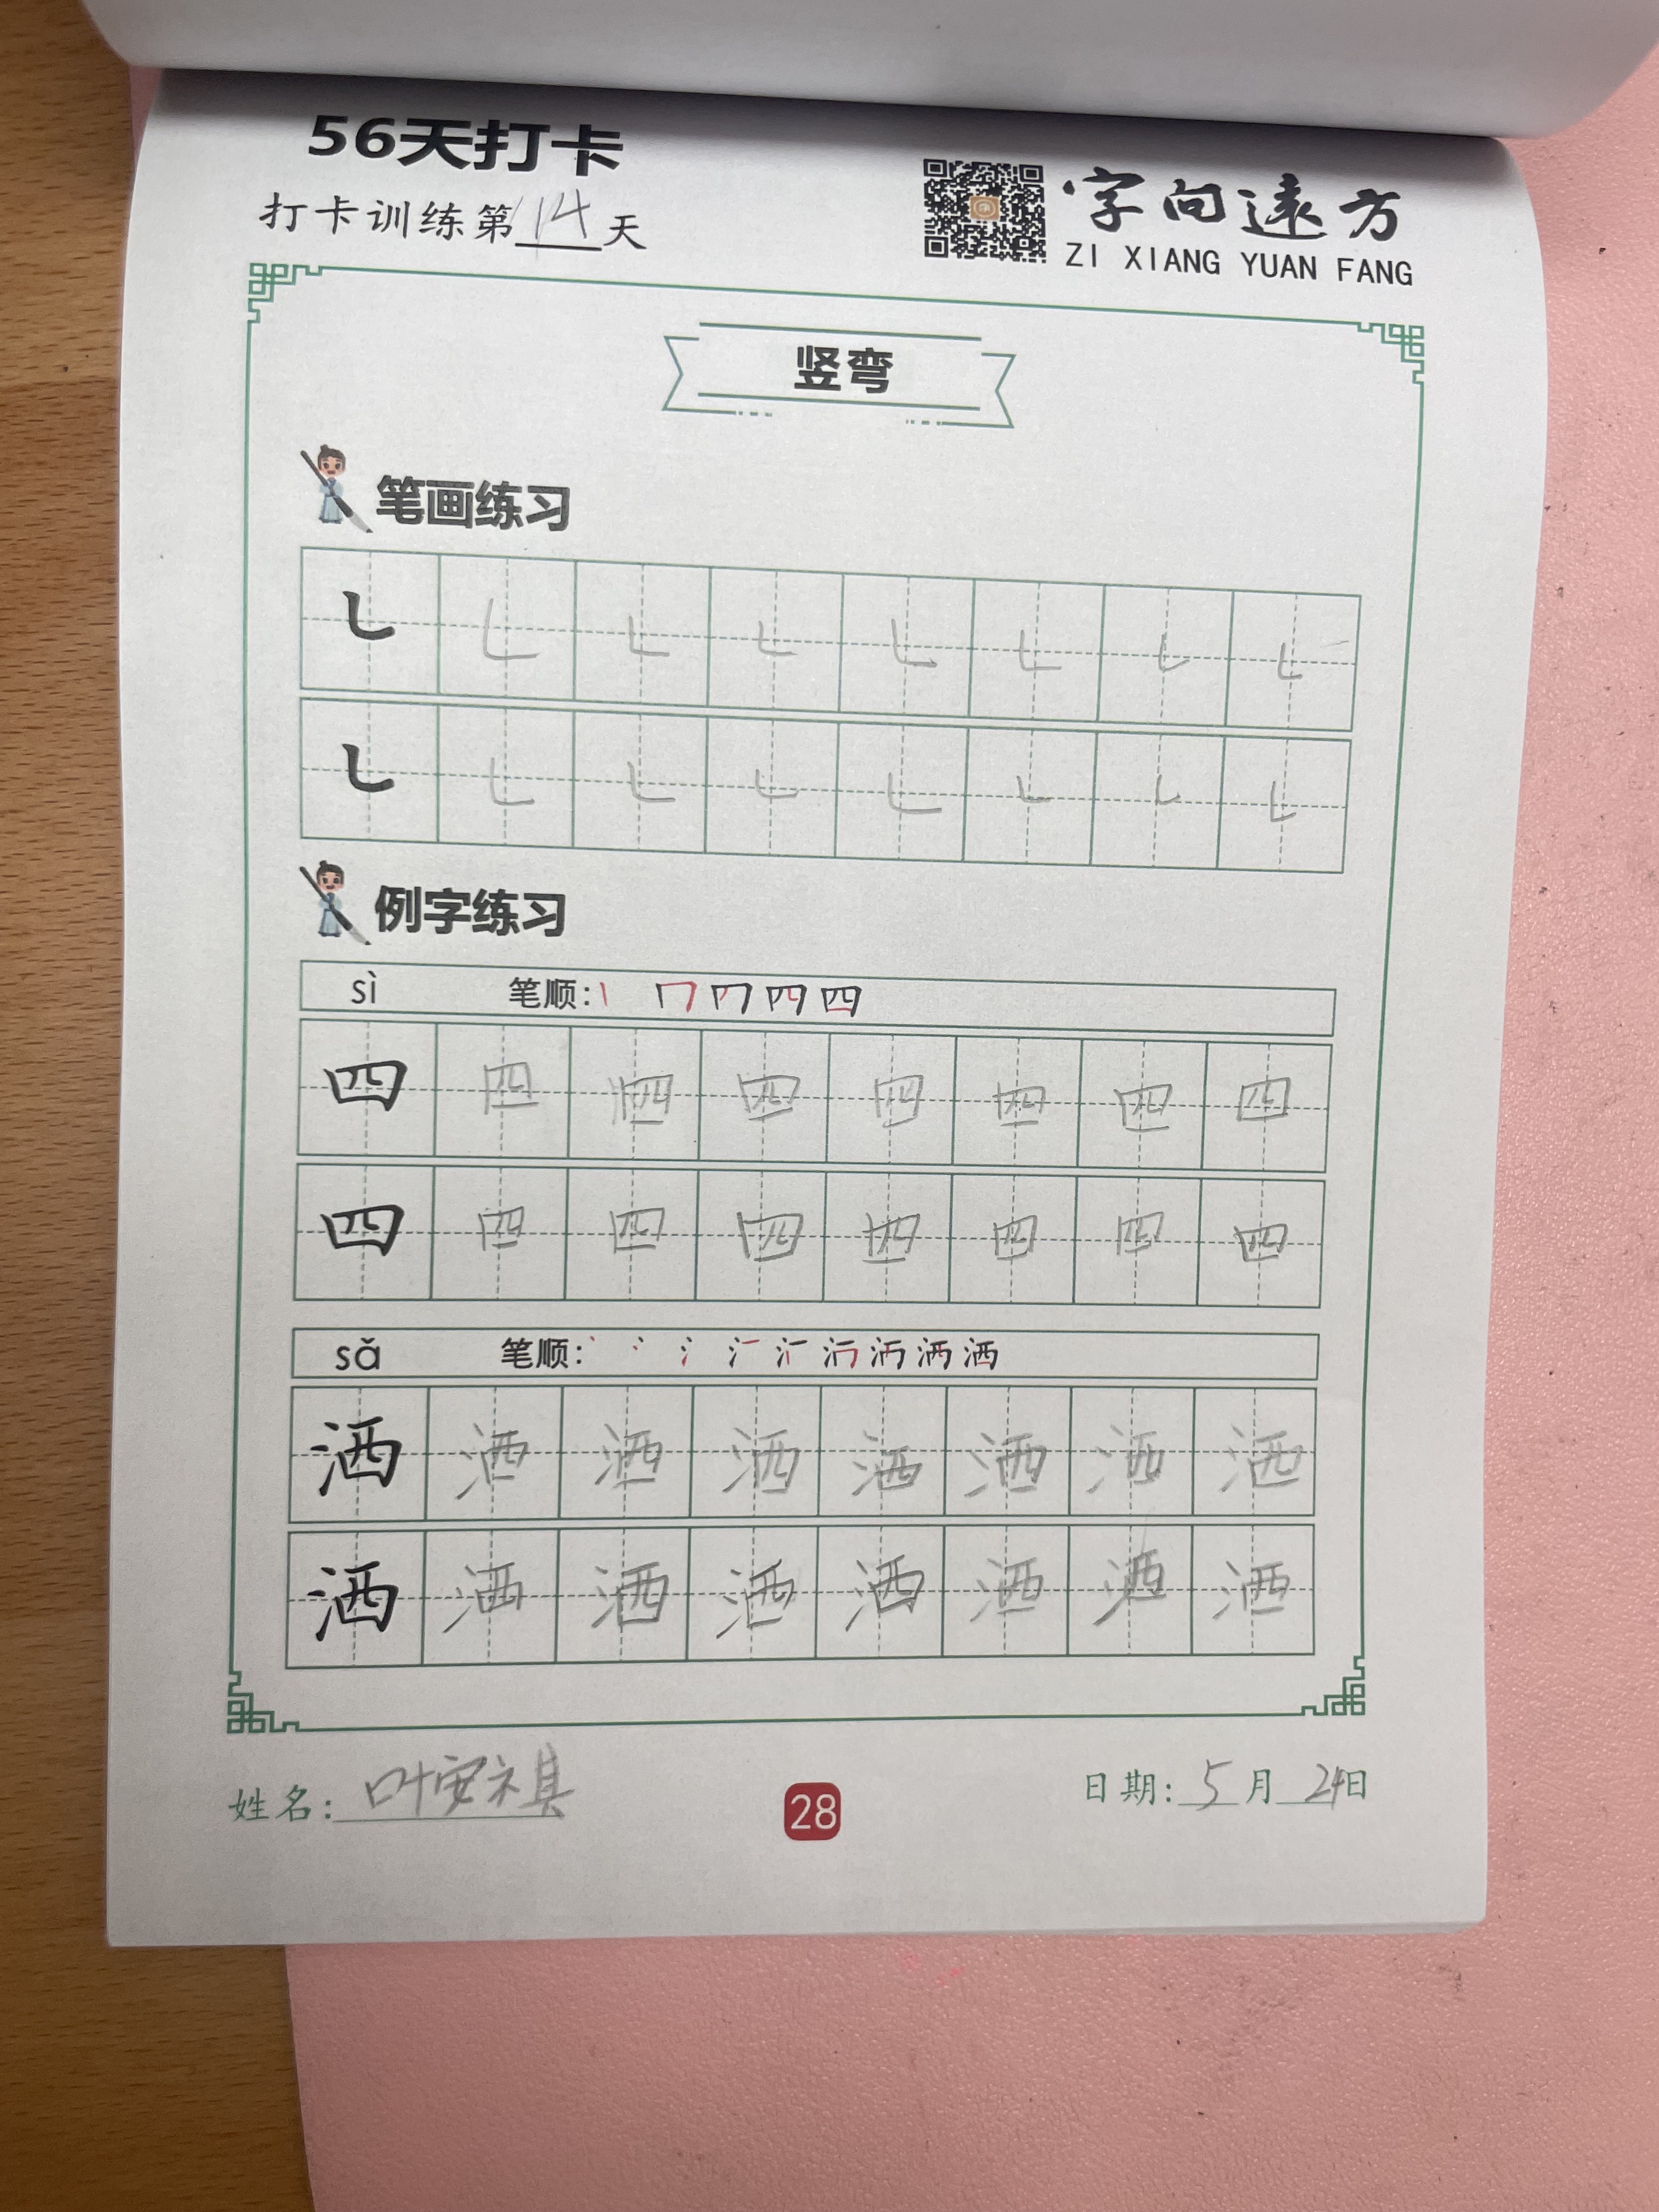 56天打卡
打卡训练第14天
字向远方
ZI XIANG YUAN FANG
竖弯
笔画练习
㇄ ㇄ ㇄ ㇄ ㇄ ㇄ ㇄ ㇄
㇄ ㇄ ㇄ ㇄ ㇄ ㇄ ㇄ ㇄
例字练习
sì 笔顺: 四
四 四 四 四 四 四 四 四
四 四 四 四 四 四 四 四
sǎ 笔顺: 洒
洒 洒 洒 洒 洒 洒 洒 洒
洒 洒 洒 洒 洒 洒 洒 洒
姓名: 叶安祺
28
日期: 5月24日